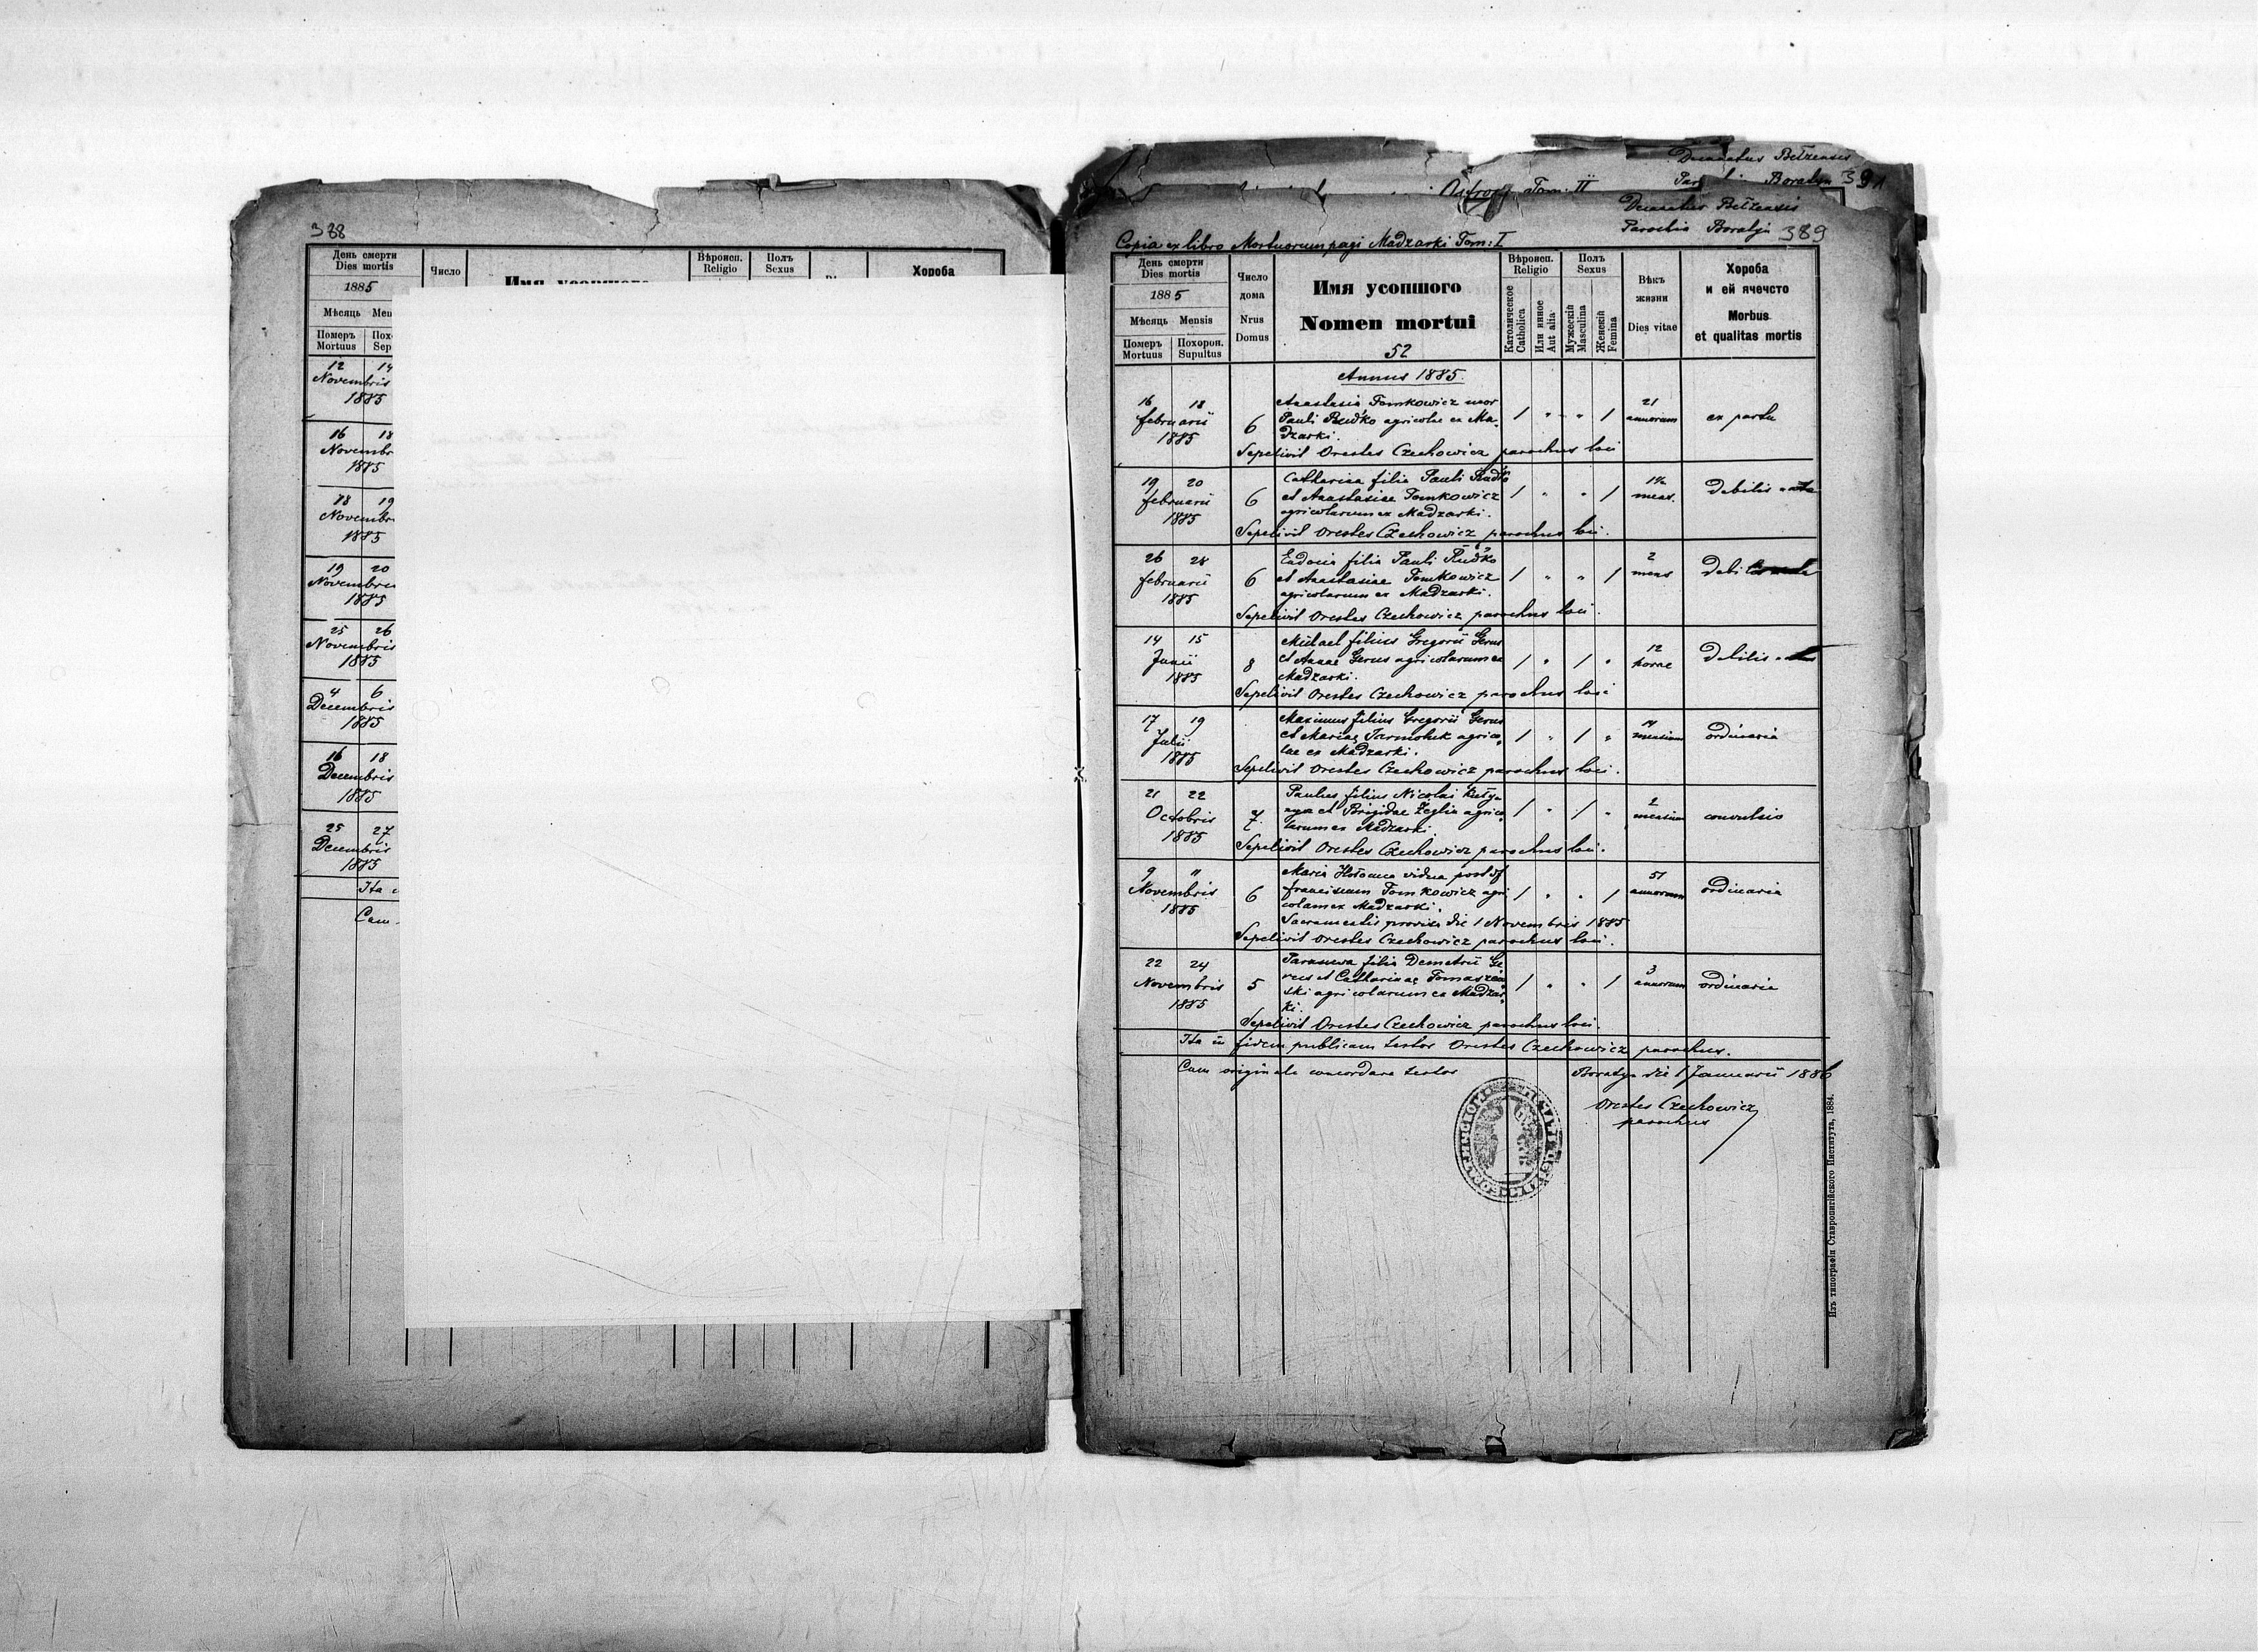 388
День смерти
Dies mortis
Число
Вѣроисп.
Religio
Полъ
Sexus
Хороба
1885
Мѣсяць
Померъ
Mortuus
12 14
Novembris
1885
16 18
Novembr
1885
18 19
Novembr
1885
19 20
Novembris
1885
25 26
Novembris
1885
4 6
Decembris
1885
16 18
Decembris
1885
25 27
Decembris
1885
Ita
Cum
Decanatus Bełzensis
Boratyn 391
Ostrow Tom: II
Decanatus Bełzensis
Parochia Boratyn 389
Copia ex libro Mortuorum pagi Madzarki Tom: I
День смерти
Dies mortis
1885
Мѣсяць Mensis
Померъ
Mortuus
Похорон.
Supultus
Число
дома
Nrus
Domus
Имя усопшого
Nomen mortui
52
Вѣроисп.
Religio
Католическое
Catholica
Или инное
Aut alia
Полъ
Sexus
Мужескій
Masculina
Женскій
Femina
Вѣкъ
жизни
Dies vitae
Хороба
и ей ячечсто
Morbus
et qualitas mortis
Annus 1885.
16 18
februarii
1885
6
Anastasia Tomkowicz uxor
Pauli Rudko agricolae ex Ma-
dzarki.
1 " " 1
21
annorum
ex partu
Sepelivit Orestes Czechowicz parochus loci
19 20
februarii
1885
6
Catharina filia Pauli Rudko
et Anastasiae Tomkowicz
agricolarum ex Madzarki.
1 " " 1
mens.
Debilis
Sepelivit Orestes Czechowicz parochus loci.
26 28
februarii
1885
6
Eudocia filia Pauli Rudko
et Anastasiae Tomkowicz
agricolarum ex Madzarki.
1 " " 1
2
mens
Sepelivit Orestes Czechowicz parochus loci.
14 15
Junii
1885
8
Michael filius Gregorii Gerus
et Annae Gerus agricolarum ex
Madzarki.
1 " 1 "
12
horae
Debilis
Sepelivit Orestes Czechowicz parochus loci
17 19
Julii
1885
Maximus filius Gregorii Gerus
et Mariae Jarmoluk agrico-
lae ex Madzarki.
1 " 1 "
mensium
ordinaria
Sepelivit Orestes Czechowicz parochus loci.
21 22
Octobris
1885
7
Paulus filius Nicolai
et Brigidae Żeglin agrico-
larum ex Madzarki
1 " 1 "
2
mensium
convulsio
Sepelivit Orestes Czechowicz parochus loci.
9 11
Novembris
1885
6
Maria vidua post
franciscum Tomkowicz agri
colam ex Madzarki.
1 " " 1
51
annorum
ordinaria
Sacramentis provisa die 1 Novembris 1885
Sepelivit Orestes Czechowicz parochus loci.
22 24
Novembris
1885
5
Parasceva filia Demetrii Ge
rus et Catharinae Tomaszew
ski agricolarum ex Madzar
ki.
1 " " 1
3
annorum
ordinaria
Sepelivit Orestes Czechowicz parochus loci.
Ita in fidem publicam testor Orestes Czechowicz parochus.
Cum originale concordare testor
Boratyn die 1 Januarii 1886
Orestes Czechowicz
parochus
Изъ типографіи Ставропигійского Института, 1884.